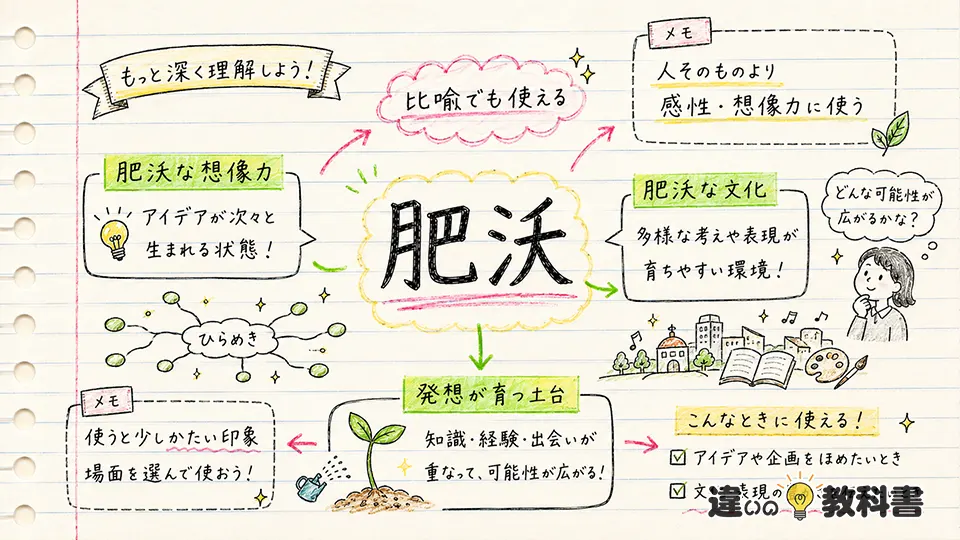 もっと深く理解しよう！
比喩でも使える
メモ
人そのものより
感性・想像力に使う
肥沃な想像力
アイデアが次々と
生まれる状態！
肥沃
肥沃な文化
多様な考えや表現が
育ちやすい環境！
どんな可能性が
広がるかな？
ひらめき
メモ
使うと少しかたい印象
場面を選んで使おう！
発想が育つ土台
知識・経験・出会いが
重なって、可能性が広がる！
こんなときに使える！
アイデアや企画をほめたいとき
表現の
違いの教科書